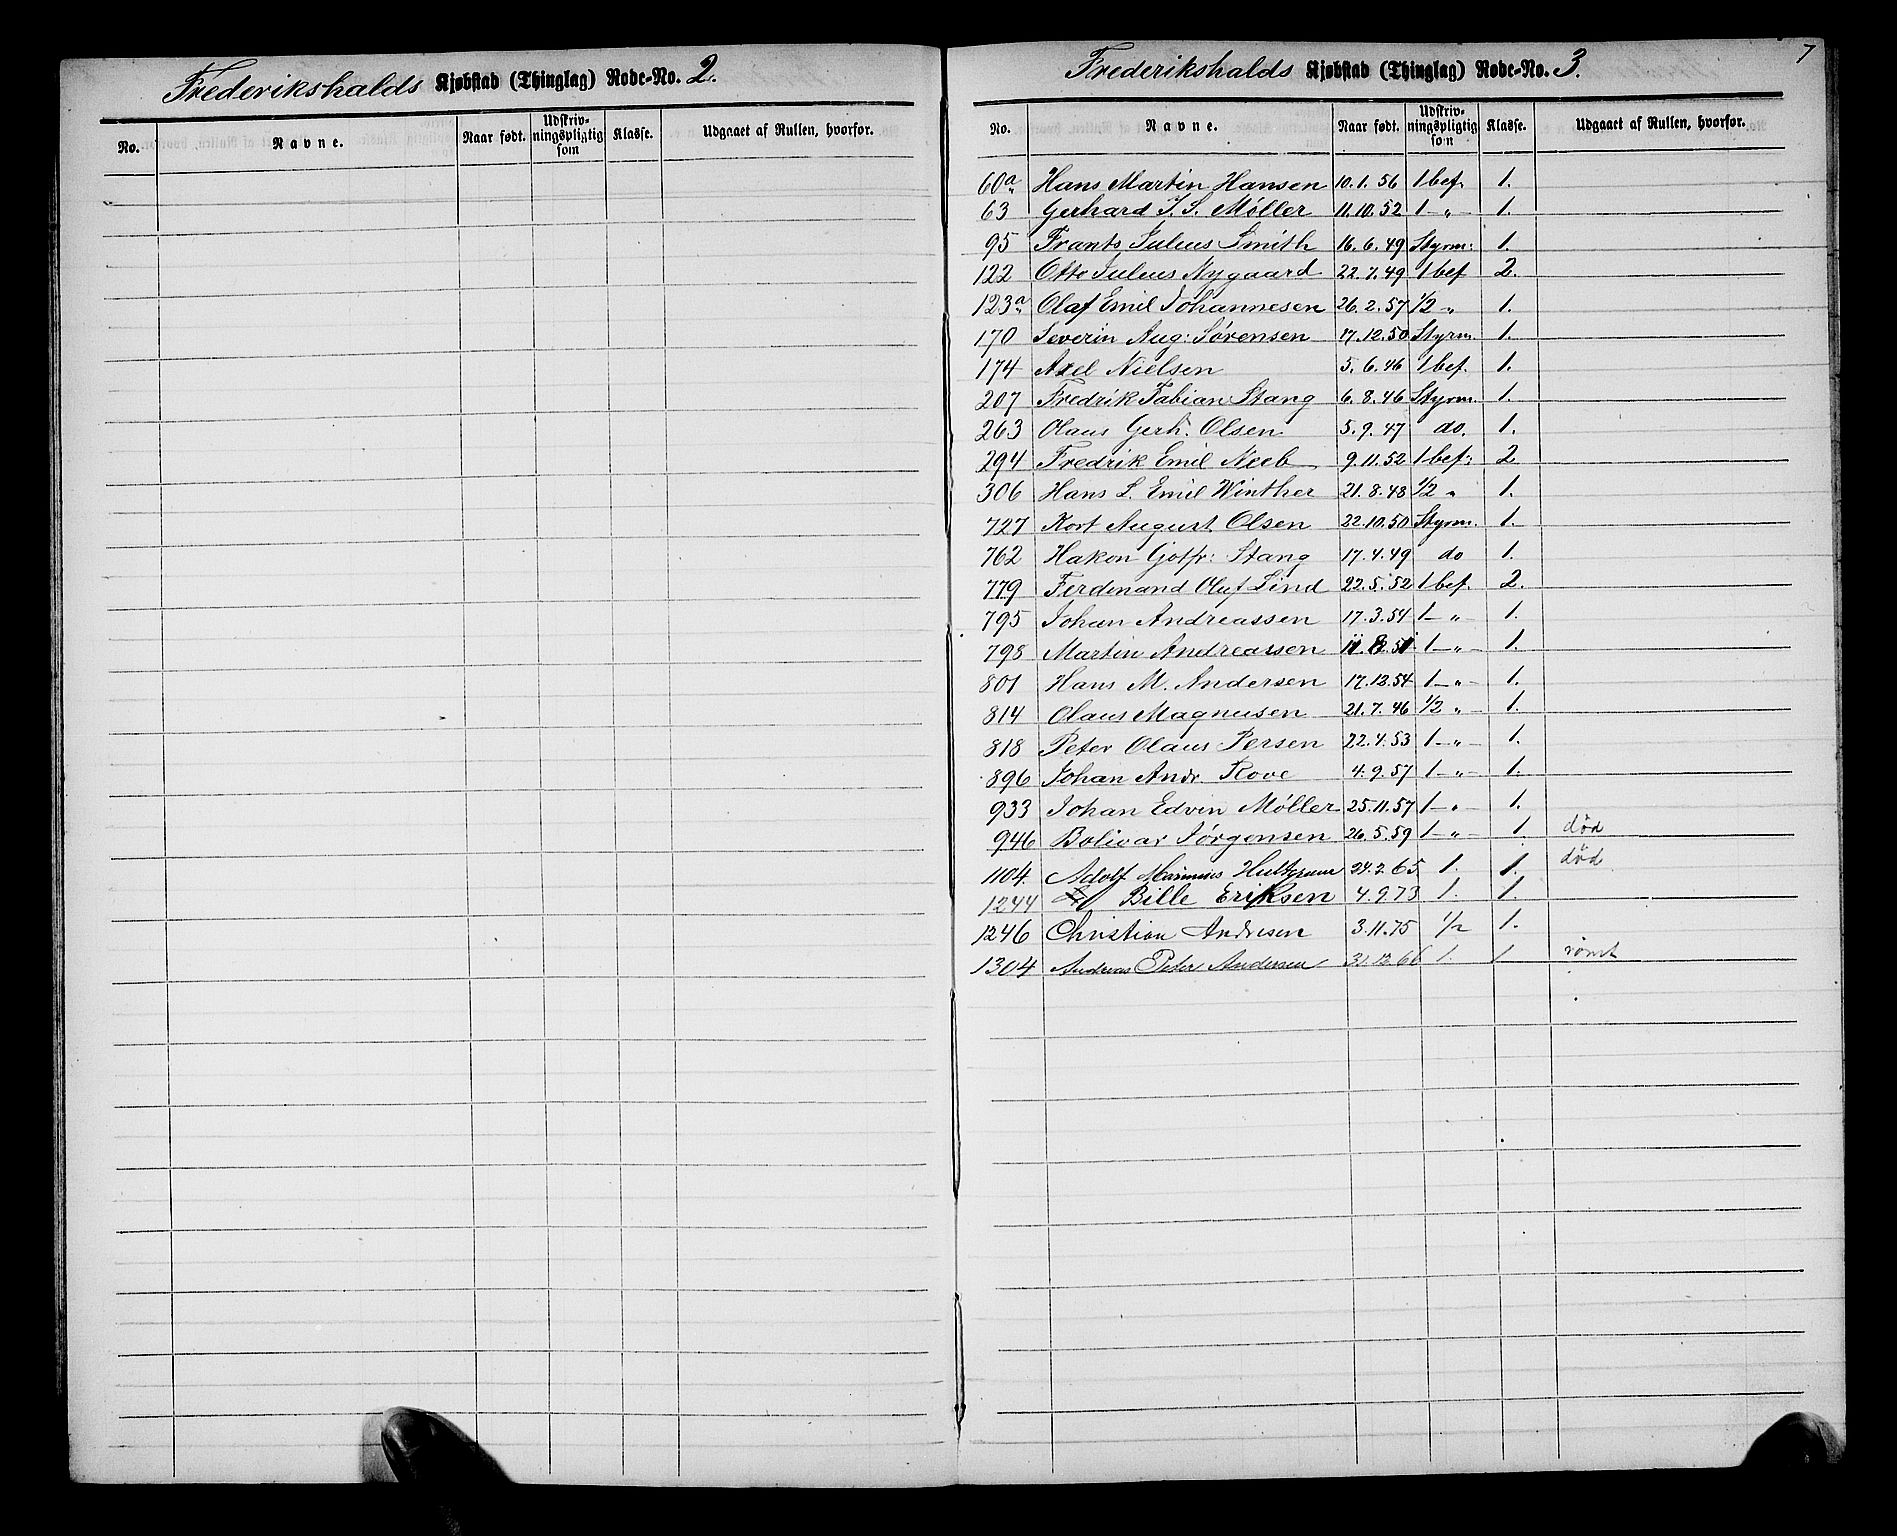 Frederikshalds Kjøbstad (Thinglag) Rode-No. 2.
No. Navne. Naar født. Udskriv-ningspligtig som Klasse. Udgaaet af Rullen, hvorfor.
7
Frederikshalds Kjøbstad (Thinglag) Rode-No. 3.
No. Navne. Naar født. Udskriv-ningspligtig som Klasse. Udgaaet af Rullen, hvorfor.
60a Hans Martin Hansen 10.1.56 1 bef. 1.
63 Gerhard J. S. Møller 11.10.52 1 – „ – 1.
95 Frants Julius Smith 16.6.49 Styrm: 1.
122 Otto Julius Nygaard 22.7.49 1 bef 2.
123a Olaf Emil Johannesen 26.2.57 1/2 „ 1.
170 Severin Aug: Sørensen 17.12.50 Styrm. 1.
174 Axel Nielsen 5.6.46 1 bef. 1.
207 Fredrik Fabian Stang 6.8.46 Styrm. 1.
263 Olaus Gerh. Olsen 5.9.47 do. 1.
294 Fredrik Emil Neeb 9.11.52 1 bef: 2
306 Hans L. Emil Winther 21.8.48 1/2 „ 1.
727 Kort August Olsen 22.10.50 Styrm. 1.
762 Hakon Gotfr: Stang 17.4.49 do 1.
779 Ferdinand Oluf Lind 22.5.52 1 bef. 2.
795 Johan Andreassen 17.3.54 1 – „ – 1.
798 Martin Andreassen 1 – „ – 1.
801 Hans M. Andersen 17.12.54 1 – „ – 1.
814 Olaus Magnusen 21.7.46 1/2 „ 1.
818 Peter Olaus Persen 22.4.53 1 – „ – 1.
896 Johan Andr Rove 4.9.57 1 – „ – 1.
933 Johan Edvin Møller 25.11.57 1 – „ – 1.
946 Bolivar Jørgensen 26.5.59 1 – „ – 1. død
1104. Adolf Marinius 24.2.65 1. 1. død
1244 Bille Eriksen 4.9.73 1. 1.
1246 Christian Andresen 3.11.75 1/2 1.
1304 Andreas Peter Andersen 31.12.66 1. 1 rømt